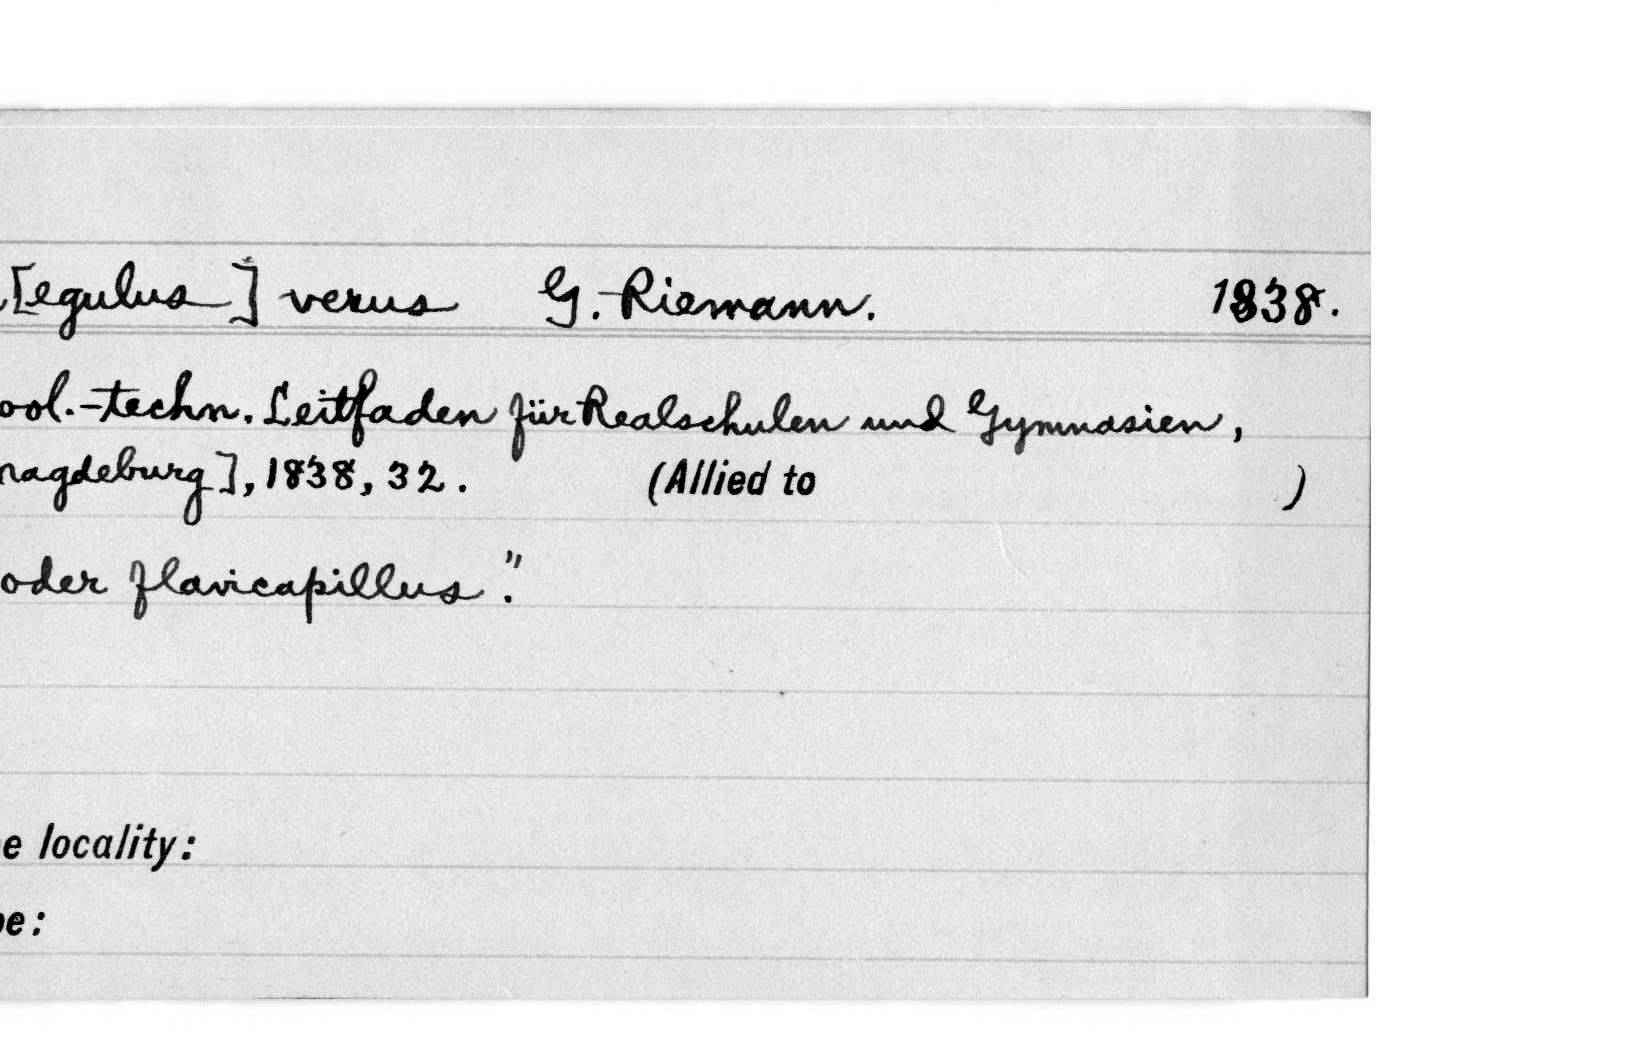 [egulus] verus G. Riemann. 1838.
ool.-techn. Leitfaden für Realschulen und Gymnasien,
magdeburg], 1838, 32. (Allied to )
oder flavicapillus."
e locality:
pe: